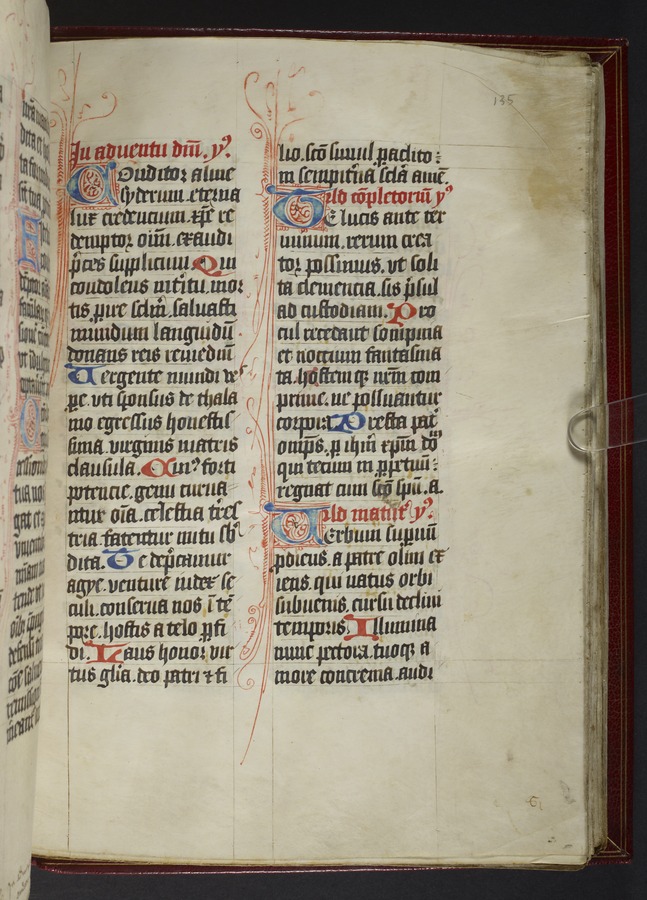 135
In aduentu dñi. yꝰ.
Conditor alme
syderum. eterna
lux credencium. xp̄e re
demptor oīm. exaudi
p̄ces supplicum. Qui
condolens int̄itu. mor
tis. pire sclm̄. saluasti
mundum languidū
donans reis remediū
Uergente mundi ves
pe. vti sponsus de thala
mo egressus honestis
sima. virginis matris
clausula. Cuiꝰ forti
potencie. genu curua
ntur oīa. celestia tres
tria. fatentur nutu sb̄
dita. Te dep̄camur
agye. venture iudex se
culi. conserua nos ī tē
pore. hostis a telo p̱fi
di. Laus honor vir
tus glīa. deo patri ⁊ fi
lio. scō simul paclito:
in sempit̄na sclā amē.
Ad cōpletoriū yꝰ
Te lucis ante ter
minum. rerum crea
tor possimus. vt soli
ta clemencia. sis p̄sul
ad custodiam. Pro
cul recedant sompnia
et noctium fantasma
ta. hostem qꝫ nr̄m com
prime. ne polluantur
corpora Presta pat̄
omp̄s. p̱ ihm̄ xpm̄ dō
qui tecum in p̱petuū:
regnat cum scō spū. a.
Ad matut̄ yꝰ.
Uerbum supnū
p̱diens. a patre olim ex
iens. qui natus orbi
subuenis. cursu decliui
temporis. Illumina
nunc pectora. tuoqꝫ a
more concrema. audi